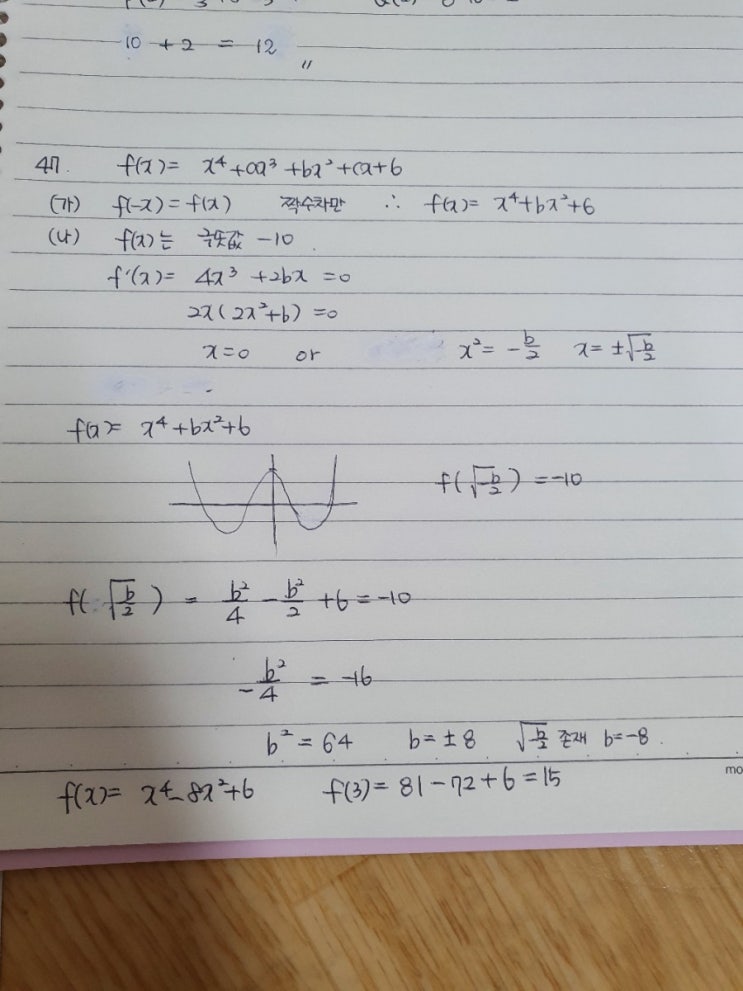 10 + 2 = 12 〃
47. f(x) = x⁴+ax³+bx²+cx+6
(가) f(-x) = f(x) 짝수차만 ∴ f(x) = x⁴+bx²+6
(나) f(x)는 극솟값 -10.
f'(x) = 4x³ +2bx =0
2x(2x²+b) =0
x=0 or x² = -b/2 x = ±√(-b/2)
f(x)= x⁴+bx²+6
f(√(-b/2)) = -10
f(√(-b/2)) = b²/4 - b²/2 +6 = -10
-b²/4 = -16
b² = 64 b = ±8 √(-b/2) 존재 b=-8.
mo
f(x)= x⁴-8x²+6 f(3) = 81-72+6 = 15